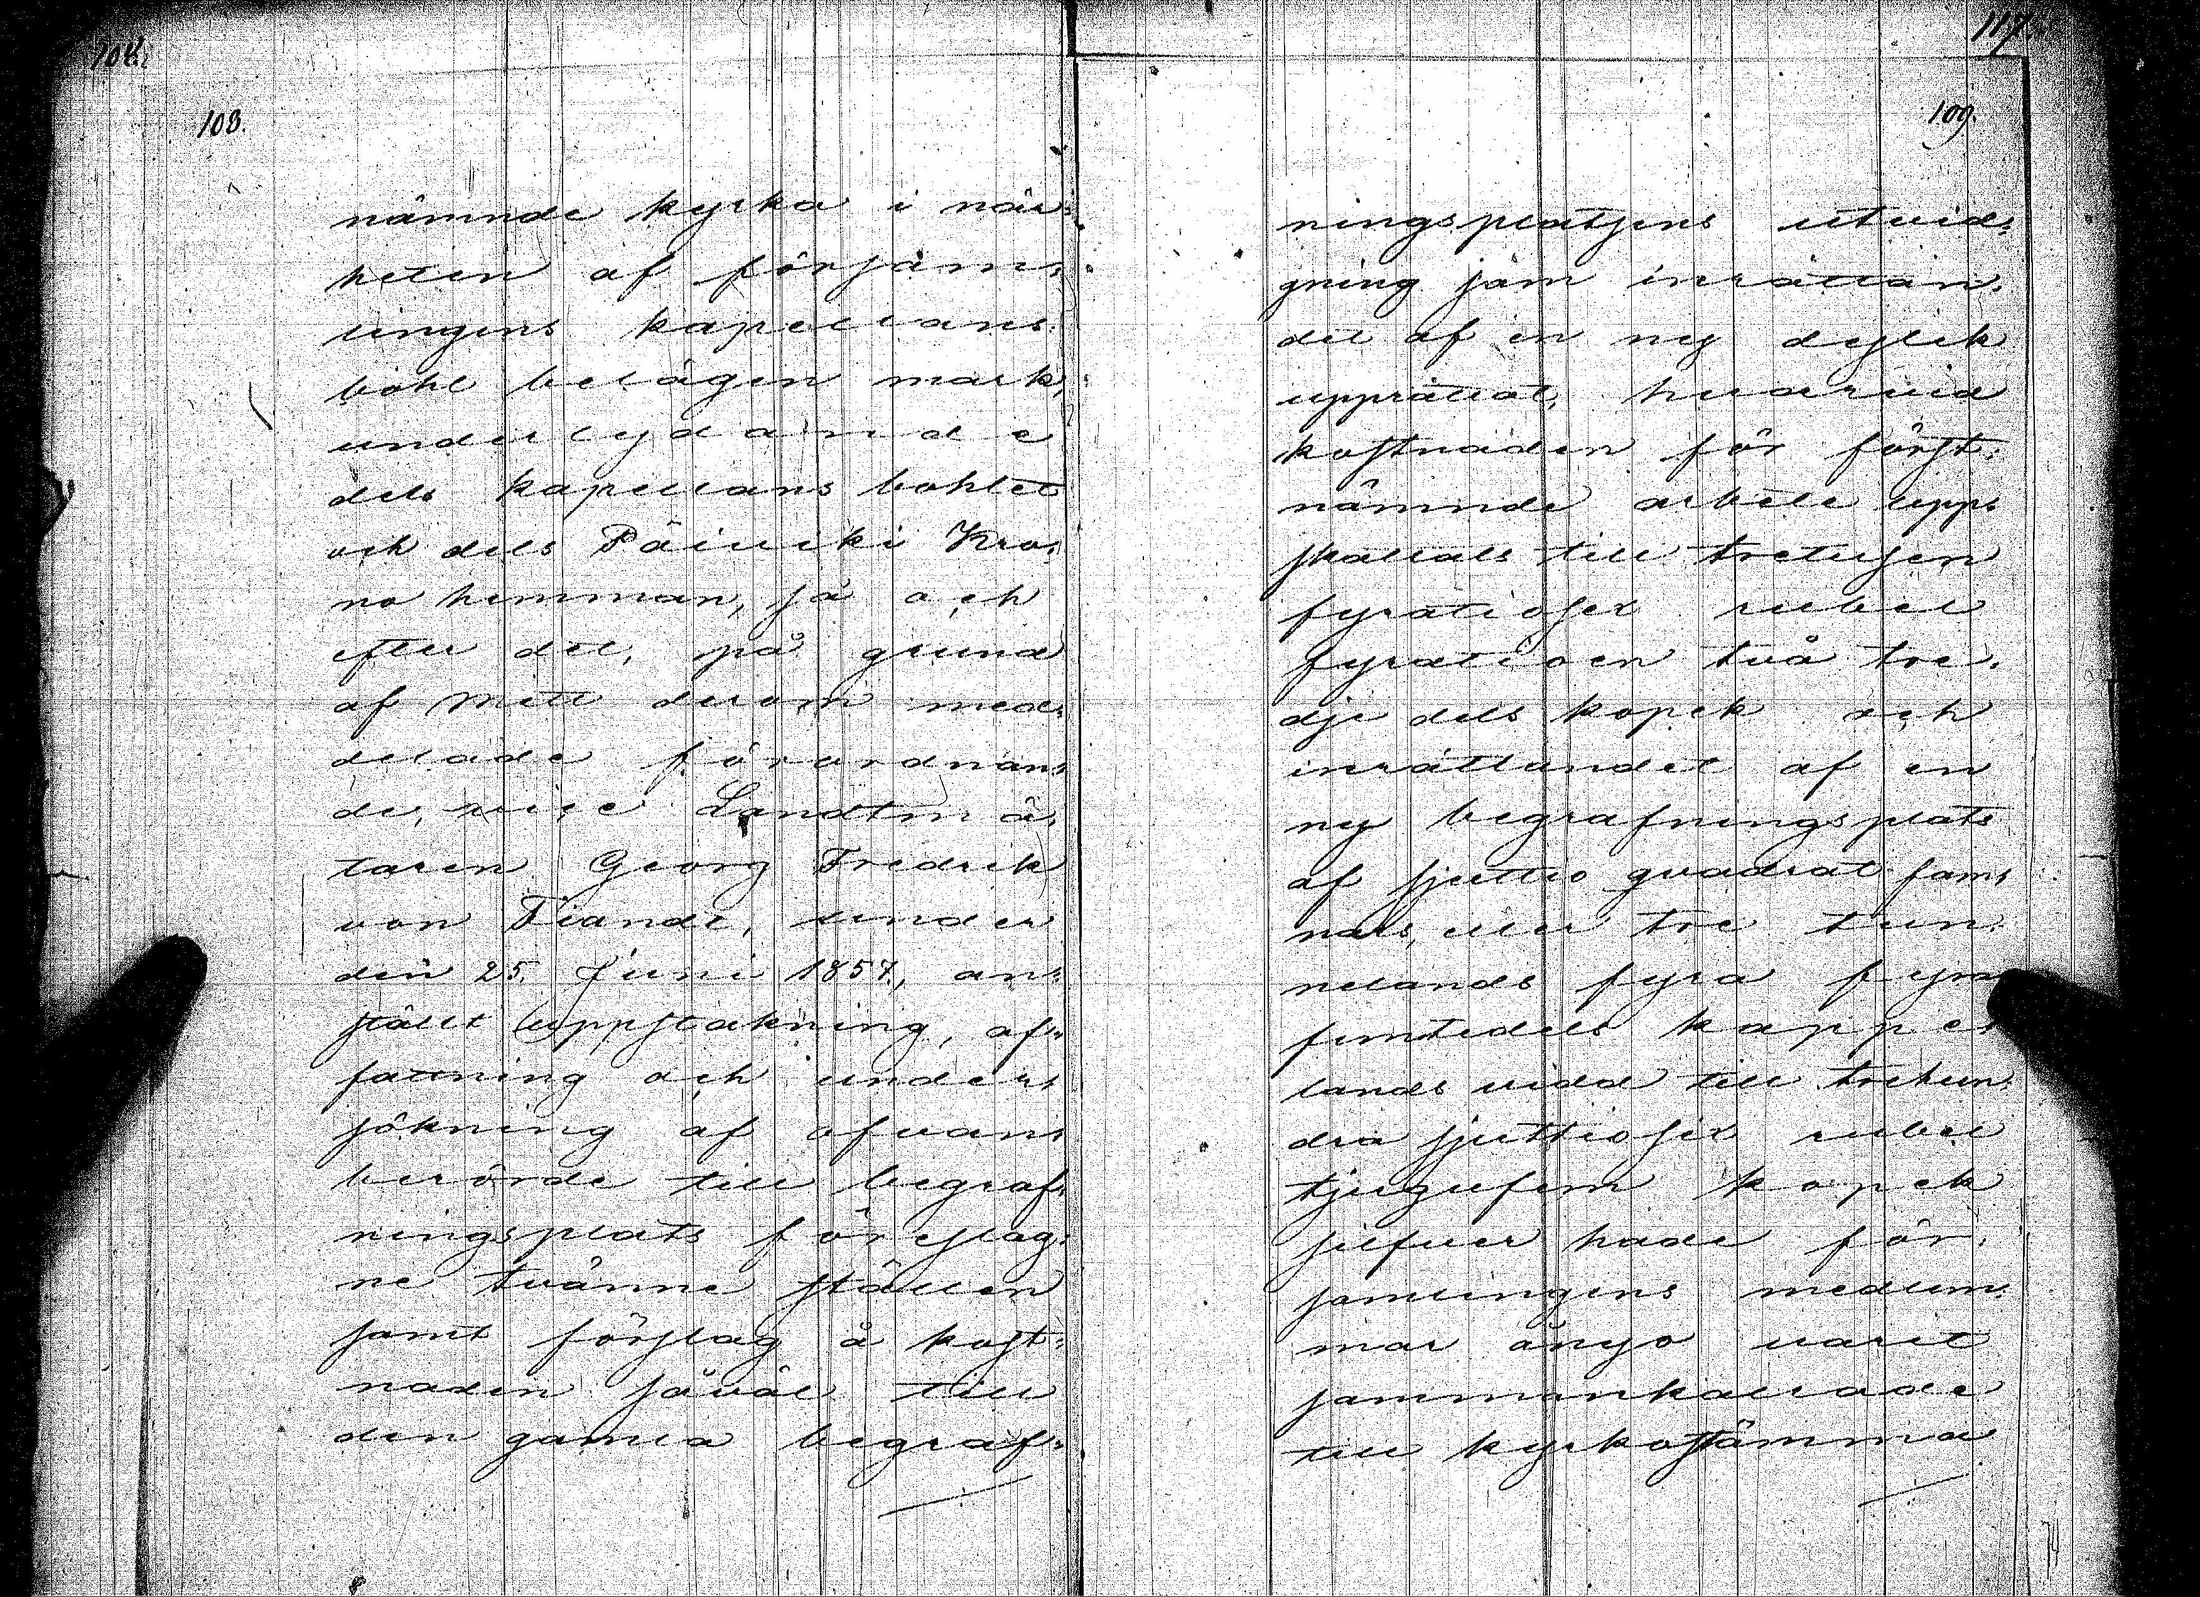 108.
nämnde kyrka i när-
heten af försam-
lingens kapellans
bohl belägen mark,
underlydande
dels kapellansbohlet
och dels Päiviki Kro-
no hemman, så och
efter det, på grund
af Mitt derom med-
delade förordnan-
de, vice Landtmä-
taren Georg Fredrik
von Fiandt, under
den 25. Juni 1857, an-
ställt uppstakning, af-
fattning och under-
sökning af ofvan-
berörde till begraf-
ningsplats föreslag-
ne tvänne ställen
samt förslag å kost-
naden såväl till
den gamla begraf-
117.
109.
ningsplatsens utvid-
gning som inrättan-
det af en ny dylik
upprättat, hvarvid
kostnaden för först-
nämnde arbete upp-
skattats till tretusen
fyratiosex rubel
fyratioen två tre-
djedels kopek och
inrättandet af en
ny begrafningsplats
af sjuttio quadrat fam-
nars, eller tre tun-
nelands fyra fyra
femtedels kappe-
lands vidd till trehun-
dra sjuttiosex rubel
tjugufem kopek
silfver hade för-
samlingens medlem-
mar ånyo varit
sammankallade
till kyrkostämma